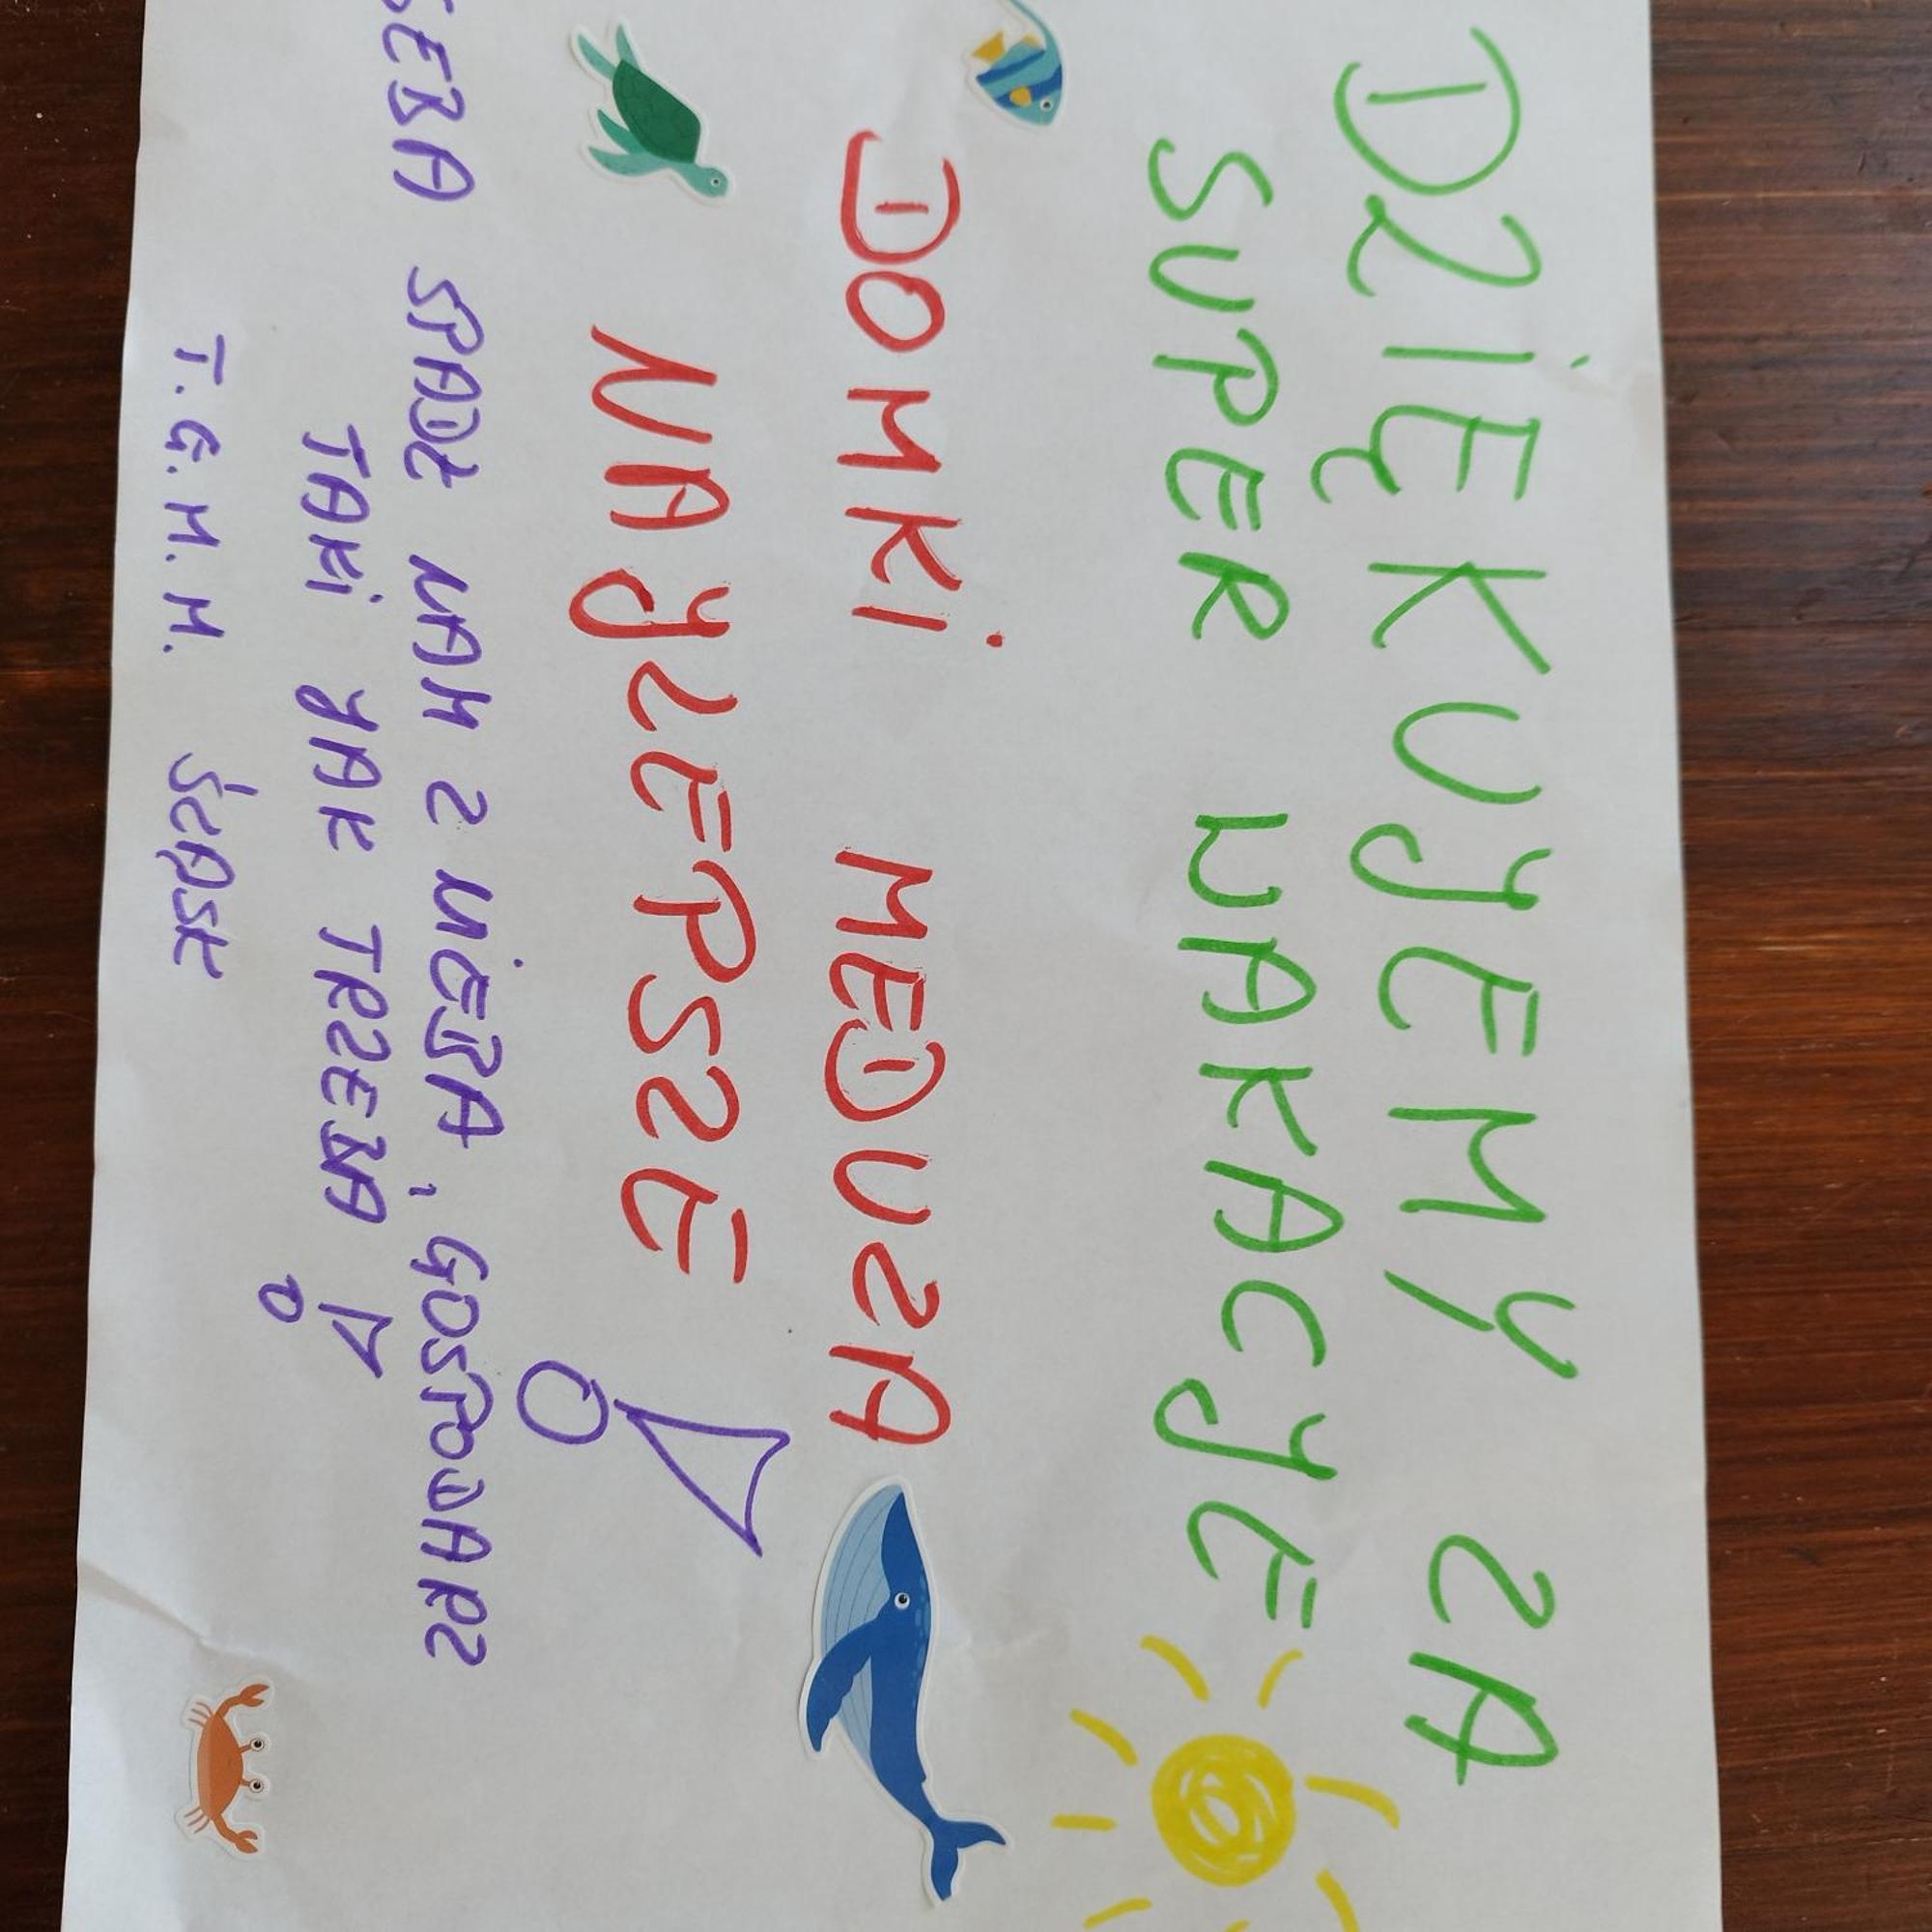 DZIĘKUJEMY ZA
SUPER WAKACJE
DOMKI MEDUZA
NAJLEPSZE!
SPADŁ NAM Z NIEBA, GOSPODARZ
TAKI JAK TRZEBA!
T.G.M.M.